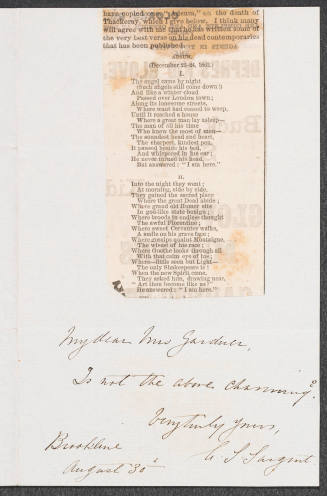 have copied one, "Adsum," on the death of
Thackeray, which I give below. I think many
will agree with me that he has written some of
the very best verse on his dead contemporaries
that has been published.
ADSUM.
(December 23-24, 1863.)
I.
The angel came by night
(Such angels still come down!)
And like a winter cloud
Passed over London town;
Along its lonesome streets,
Where want had ceased to weep,
Until it reached a house
Where a great man lay asleep—
The man of all his time
Who knew the most of men—
The soundest head and heart,
The sharpest, kindest pen.
It paused beside his bed,
And whispered in his ear;
He never turned his head,
But answered: "I am here."
II.
Into the night they went;
At morning, side by side,
They gained the sacred place
Where the great Dead abide;
Where grand old Homer sits
In god-like state benign;
Where broods in endless thought
The awful Florentine;
Where sweet Cervantes walks,
A smile on his grave face;
Where gossips quaint Montaigne,
The wisest of his race;
Where Goethe looks through all
With that calm eye of his;
Where—little seen but Light—
The only Shakespeare is!
When the new Spirit came,
They asked him, drawing near,
"Art thou become like us?"
He answered: "I am here."
My dear Mrs Gardner,
Is not the above charming?
Very truly yours,
C S Sargent
Brookline
August 30th